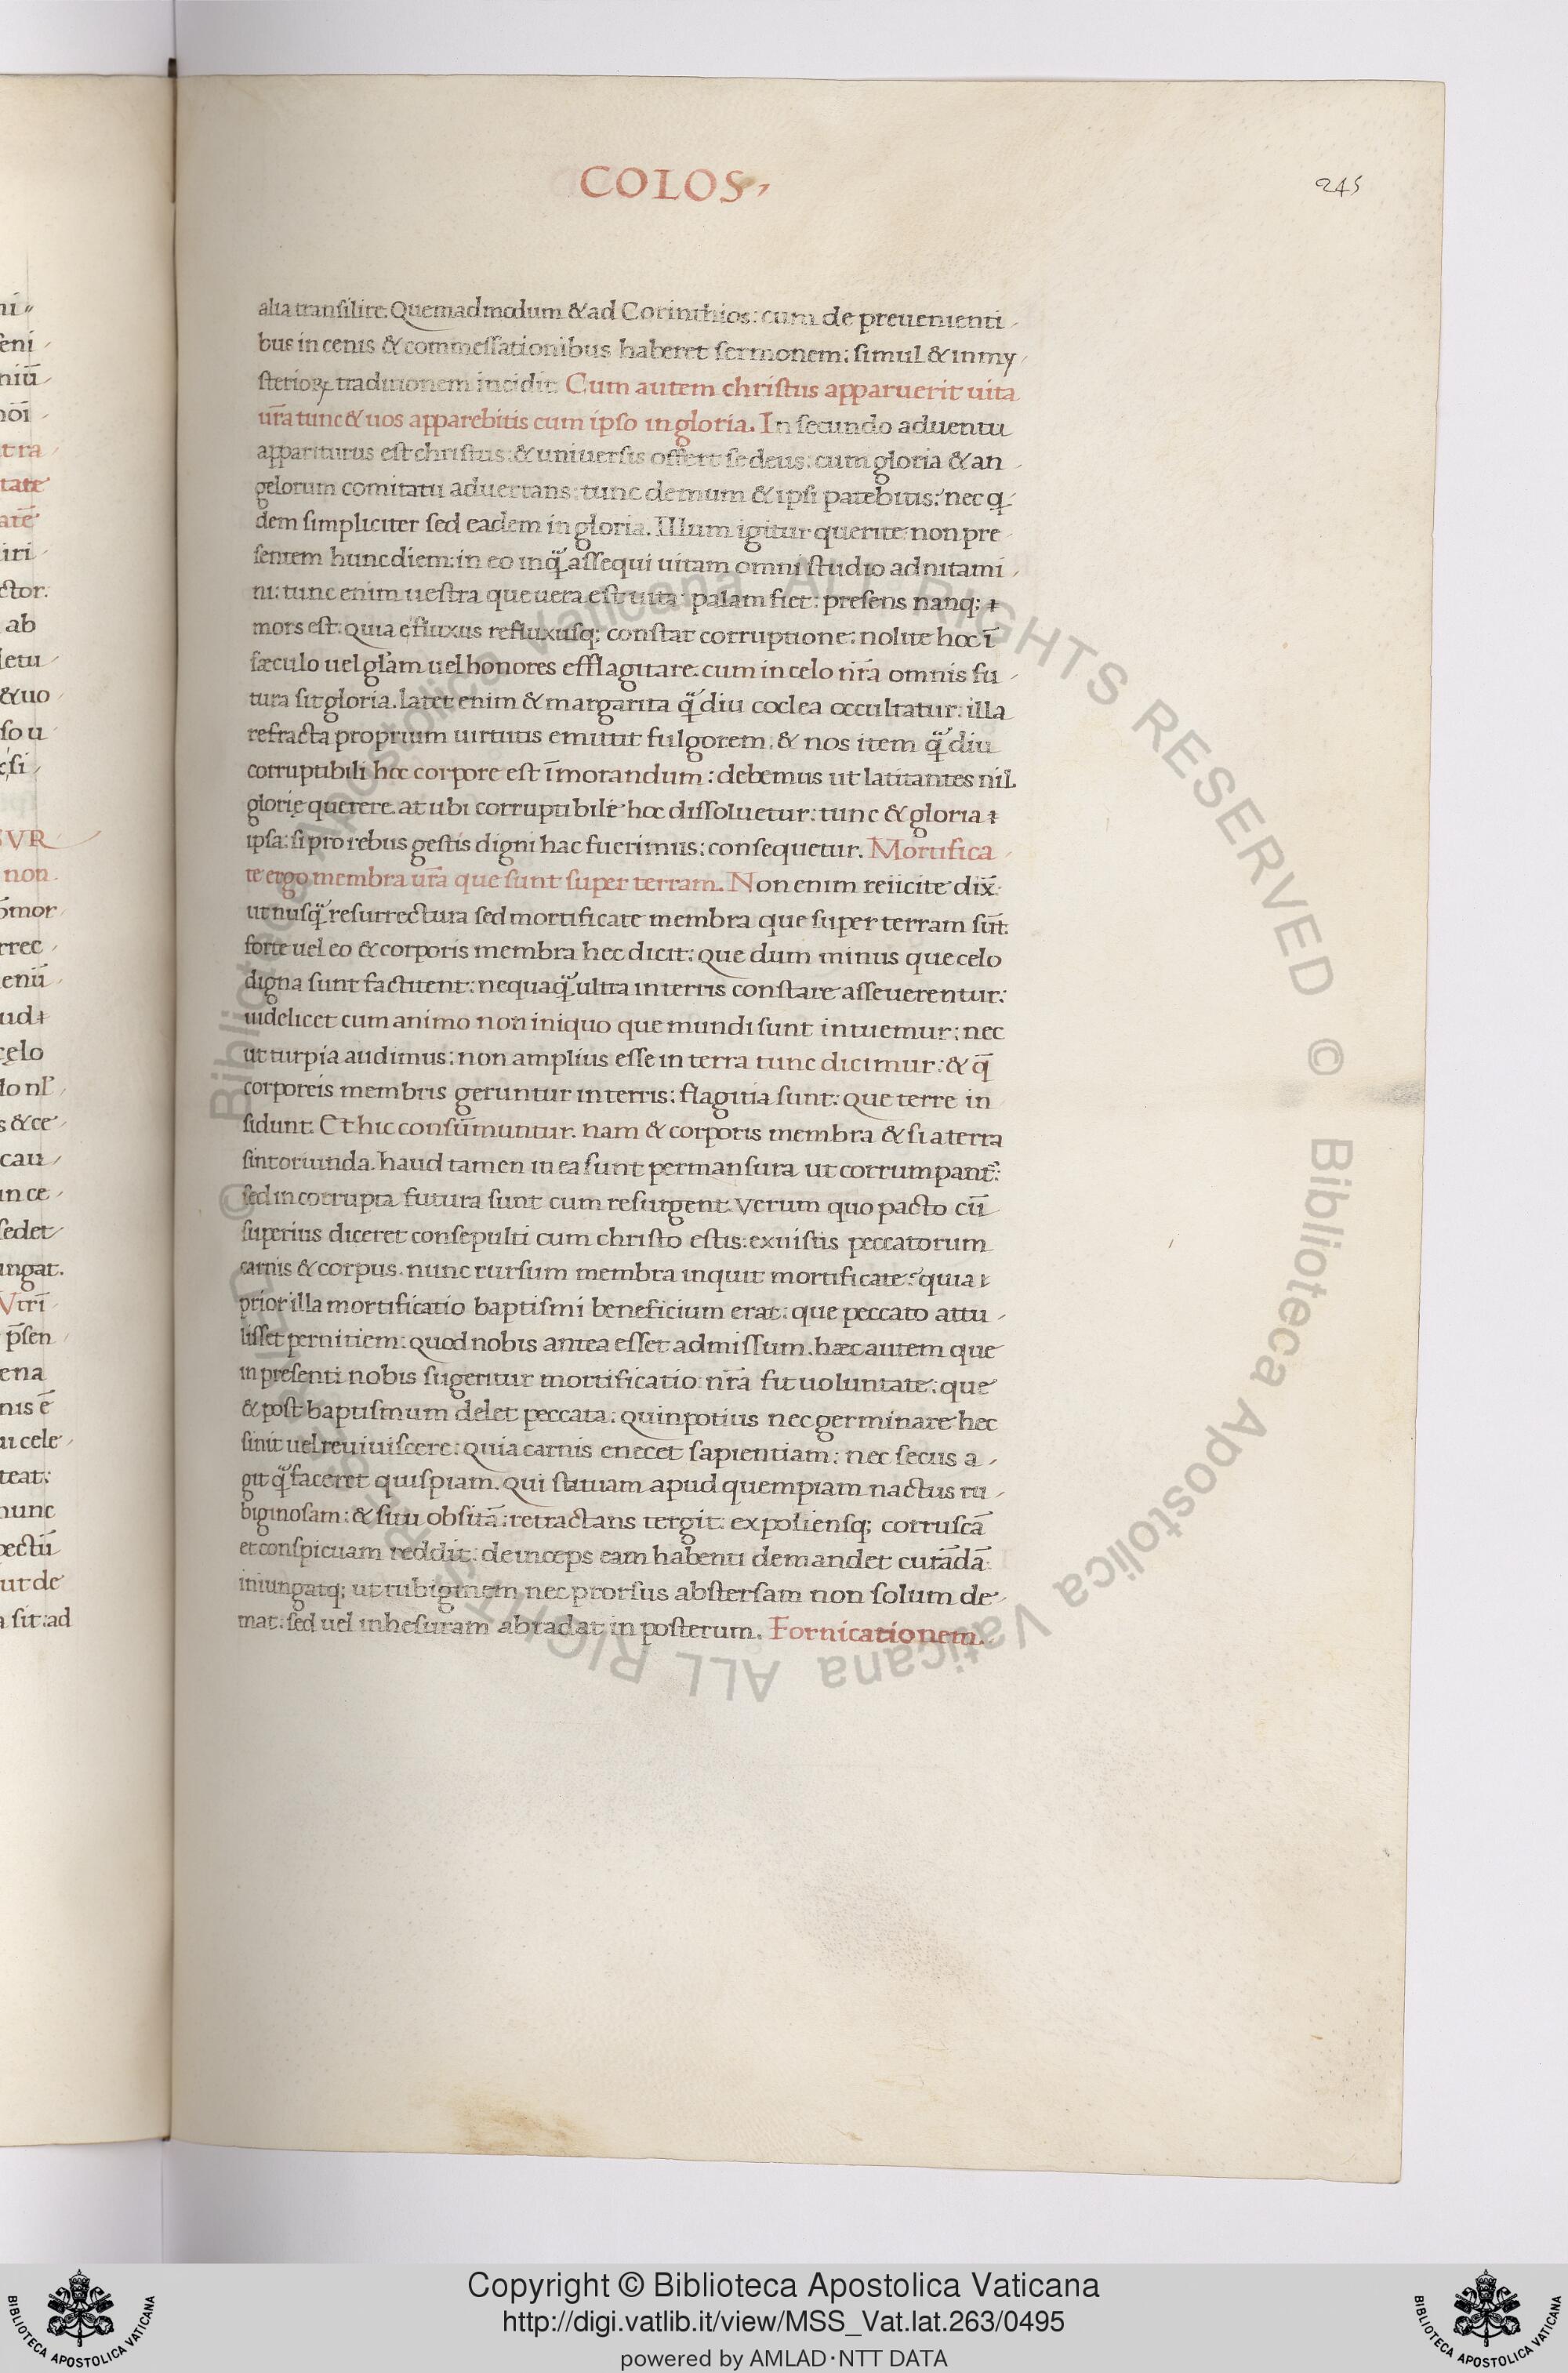 COLOS,
245
alia transilire. Quemadmodum & ad Corinthios: cum de preuenienti
bus in cenis & commessationibus haberet sermonem: simul & in my
sterioꝝ traditionem incidit. Cum autem christus apparuerit uita
ur̄a tunc & uos apparebitis cum ipso in gloria. In secundo aduentu
appariturus est christus: & uniuersis offert se deus: cum gloria & an
gelorum comitatu aduertans: tunc demum & ipsi patebitis: nec q
dem simpliciter sed eadem in gloria. Illum igitur querite: non pre
sentem hunc diem: in eo inq̄ assequi uitam omni studio adnitami
ni: tunc enim uestra que uera est uita: palam fiet: presens nanq;
mors est. Quia efluxus refluxusq; constat corruptione: nolite hoc ī
sæculo uel glam uel honores efflagitare. cum in celo nr̄a omnis fu
tura sit gloria. latet enim & margarita q̄diu coclea occultatur: illa
refracta proprium uirtutis emittit fulgorem. & nos item q̄diu
corruptibili hoc corpore est īmorandum: debemus ut latitantes nil
glorię querere. at ubi corruptibile hoc dissoluetur: tunc & gloria
ipsa: si pro rebus gestis digni hac fuerimus: consequetur. Mortifica
te ergo membra ur̄a que sunt super terram. Non enim reiicite dix̄:
ut nusq̄ resurrectura sed mortificate membra que super terram sūt.
forte uel eo & corporis membra hec dicit: Que dum minus que celo
digna sunt factitent: nequaq̄ ultra in terris constare asseuerentur:
uidelicet cum animo non iniquo que mundi sunt intuemur: nec
ut turpia audimus: non amplius esse in terra tunc dicimur: & q̄
corporeis membris geruntur in terris: flagitia sunt: Que terre in
sidunt. Et hic consūmuntur. nam & corporis membra & si a terra
sint oriunda. haud tamen in ea sunt permansura ut corrumpant:
sed incorrupta futura sunt cum resurgent. Verum quo pacto cū
superius diceret consepulti cum christo estis: exuistis peccatorum
carnis & corpus. nunc rursum membra inquit mortificate: quia
prior illa mortificatio baptismi beneficium erat: que peccato attu
lisset pernitiem: Quod nobis antea esset admissum. hæc autem que
in presenti nobis sugeritur mortificatio nr̄a fit uoluntate: que
& post baptismum delet peccata: Quin potius nec germinare hec
sinit uel reuiuiscere: Quia carnis enecet sapientiam: nec secus a
git q̄ faceret quispiam. Qui statuam apud quempiam nactus ru
biginosam: & situ obsitā: retractans tergit: expoliensq; corruscā
et conspicuam reddit: deinceps eam habenti demandet curādā
iniungatq; ut rubiginem nec prorsus abstersam non solum de
mat: sed uel inhesuram abradat in posterum. Fornicationem.
Copyright © Biblioteca Apostolica Vaticana
http://digi.vatlib.it/view/MSS_Vat.lat.263/0495
powered by AMLAD·NTT DATA